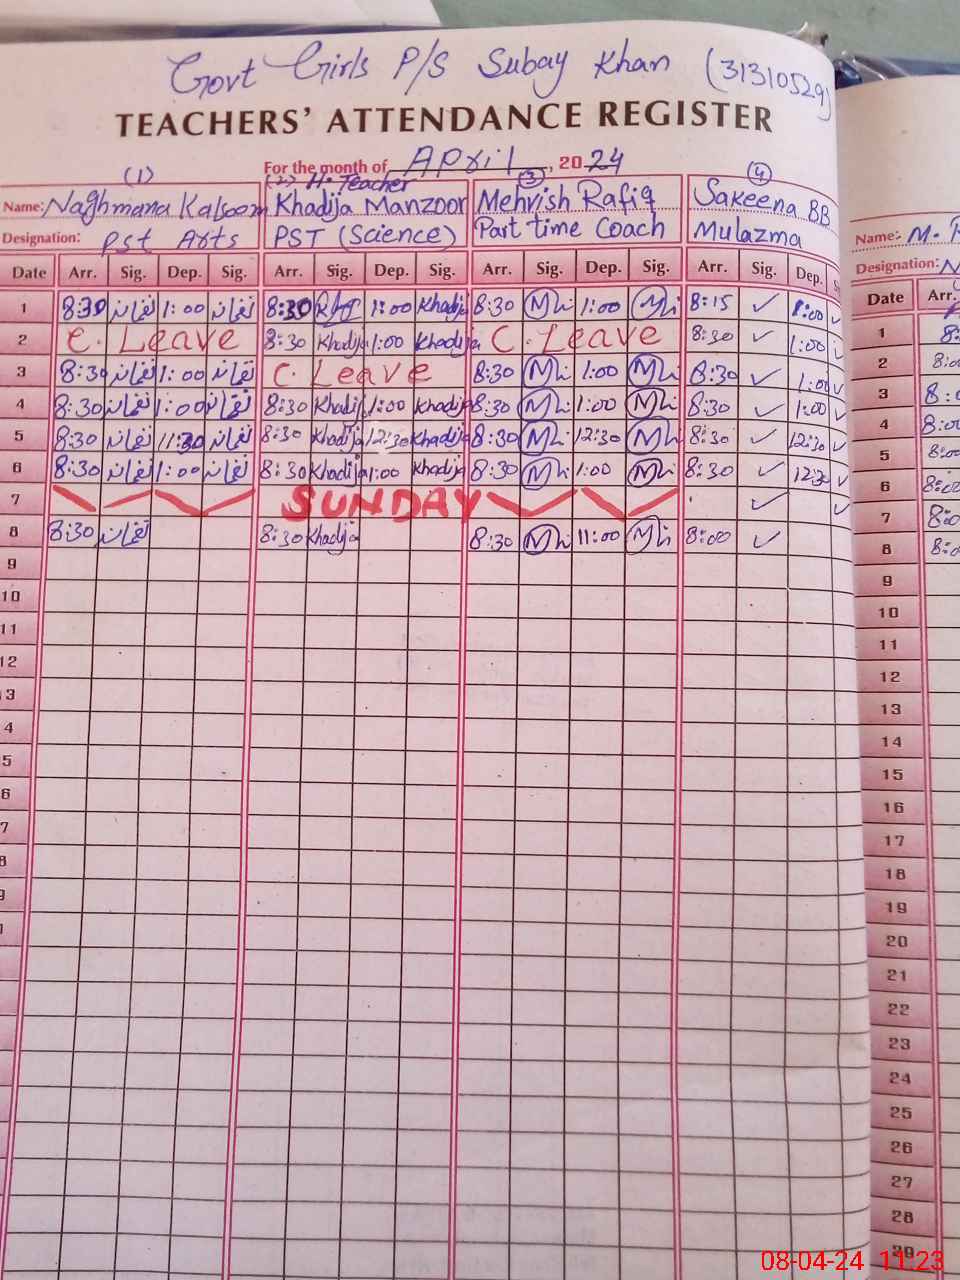 Govt Girls P/S Subay Khan (31310529)
TEACHERS' ATTENDANCE REGISTER
For the month of April, 2024
(1) (2) H. Teacher (3) (4)
Name: Naghmana Kalsoom Khadija Manzoor Mehvish Rafiq Sakeena BB Name: M.
Designation: Pst Arts PST (Science) Part time Coach Mulazma Designation:
Date Arr. Sig. Dep. Sig. Arr. Sig. Dep. Sig. Arr. Sig. Dep. Sig. Arr. Sig. Dep. Date Arr.
1 8:30 1:00 8:30 1:00 Khadija 8:30 1:00 8:15 ✓ 8:00 ✓ 1
2 C. Leave 8:30 Khadija 1:00 Khadija C. Leave 8:30 ✓ 1:00 ✓ 2 8:00
3 8:30 1:00 C. Leave 8:30 1:00 8:30 ✓ 1:00 ✓ 3
4 8:30 1:00 8:30 Khadija 1:00 Khadija 8:30 1:00 8:30 ✓ 1:00 ✓ 4 8:00
5 8:30 11:30 8:30 Khadija 12:30 Khadija 8:30 12:30 8:30 ✓ 12:30 ✓ 5 8:00
6 8:30 1:00 8:30 Khadija 1:00 Khadija 8:30 1:00 8:30 ✓ 12:30 ✓ 6 8:00
7 SUNDAY ✓ ✓ 7 8:00
8 8:30 8:30 Khadija 8:30 11:00 8:00 ✓ 8 8:00
9 9
10 10
11 11
12 12
13 13
4 14
5 15
6 16
7 17
8 18
9 19
20
21
22
23
24
25
26
27
28
29
08-04-24 11:23